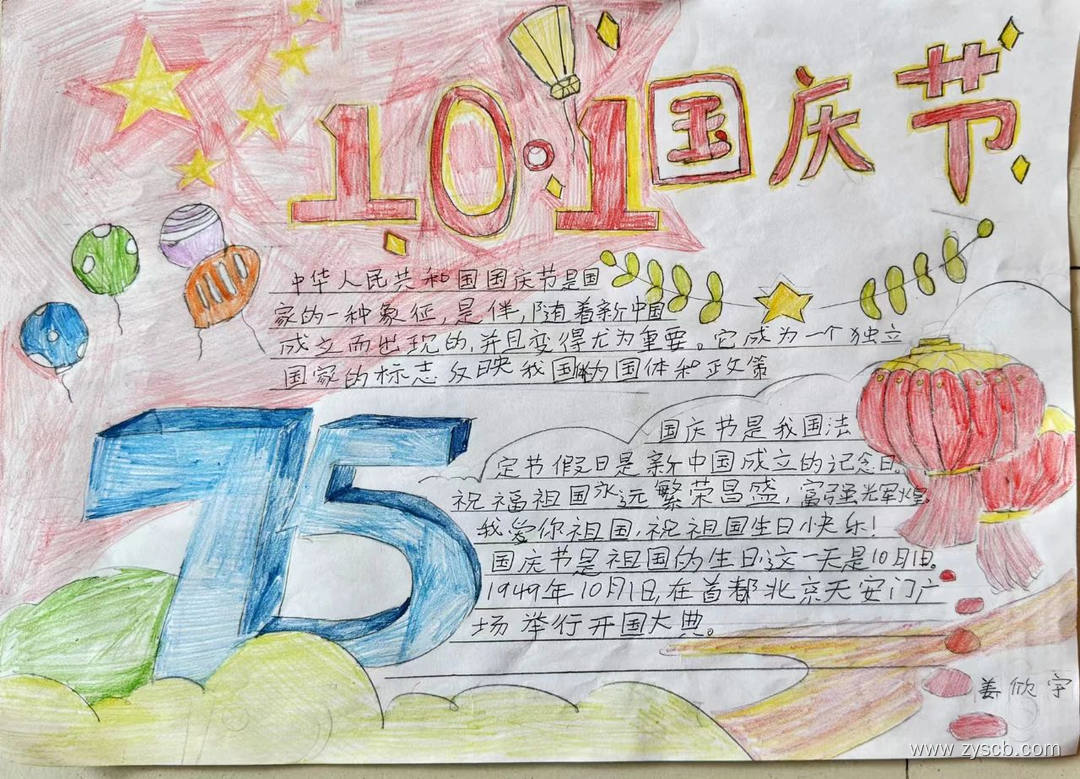 10·1国庆节
中华人民共和国国庆节是国
家的一种象征,是伴,随着新中国
成立而出现的,并且变得尤为重要。它成为一个独立
国家的标志反映我国的国体和政策
75
国庆节是我国法
定节假日是新中国成立的记念日
祝福祖国永远繁荣昌盛,富强光辉煌
我爱你祖国,祝祖国生日快乐!
国庆节是祖国的生日,这一天是10月1日。
1949年10月1日,在首都北京天安门广
场举行开国大典。
姜欣宇
www.zyscb.com